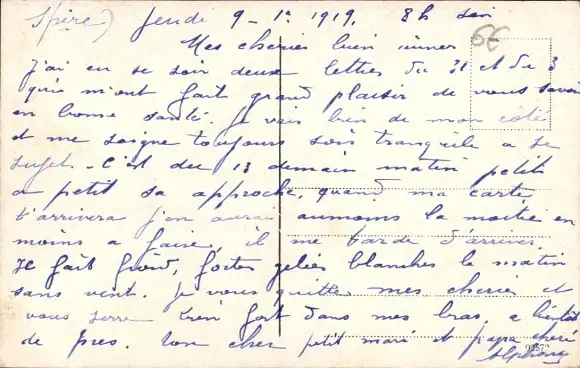 (Spire) Jeudi 9-1r 1919. 8h soir
6€
Mes cheries bien aimées
J'ai eu se soir deux lettres du 31 et du 3
qui m'ont fait grand plaisir de vous savoir
en bonne santé. Je vais bien de mon côté
et me soigne toujours sois tranquile a se
sujet. C'est du 13 demain matin petit
a petit sa approche, quand ma carte
t'arrivera j'en aurai aumoins la moitié en
moins a faire, il me tarde d'arriver.
Il fait froid, fortes gelées blanches le matin
sans vent. Je vous quitte mes cheries et
vous serre bien fort dans mes bras, a bientôt
de pres. ton cher petit mari et papa cheri
Alphonse